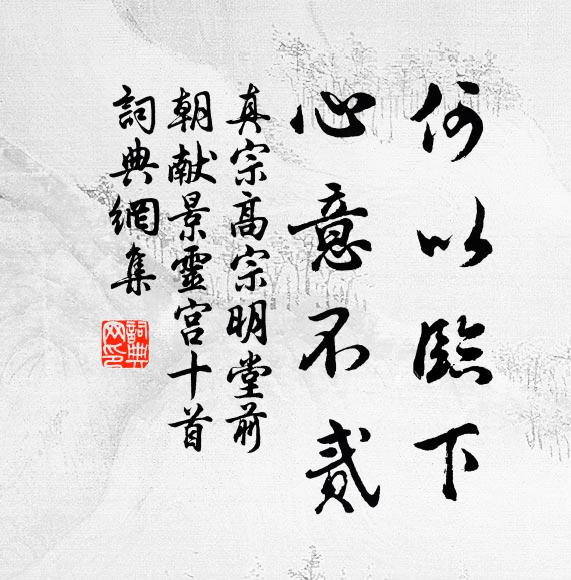 何以臨下
心意不貳
真宗高宗明堂前
朝献景靈宮十首
詞典網集
詞典網印